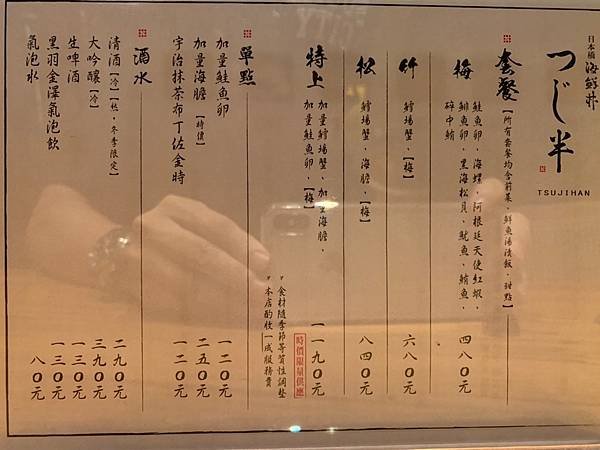 日本橋 海鮮丼
つじ半
TSUJIHAN
套餐【所有套餐均含前菜，鮮魚湯漬飯，甜點】
梅
鮭魚卵，海螺，阿根廷天使紅蝦，
鯡魚卵，黑海松貝，魷魚，鮪魚，
碎中鮪
四八〇元
竹
鱈場蟹，【梅】
六八〇元
松
鱈場蟹，海膽，【梅】
八四〇元
特上
加量鱈場蟹，加量海膽，
加量鮭魚卵，【梅】
一一九〇元
時價限量供應
〃食材隨季節等質性調整
〃本店酌收一成服務費
單點
加量鮭魚卵
一二〇元
加量海膽【時價】
二五〇元
宇治抹茶布丁佐金時
一二〇元
酒水
清酒【冷】【熱，冬季限定】
二九〇元
大吟釀【冷】
三九〇元
生啤酒
一三〇元
黑羽金澤氣泡飲
一三〇元
氣泡水
八〇元